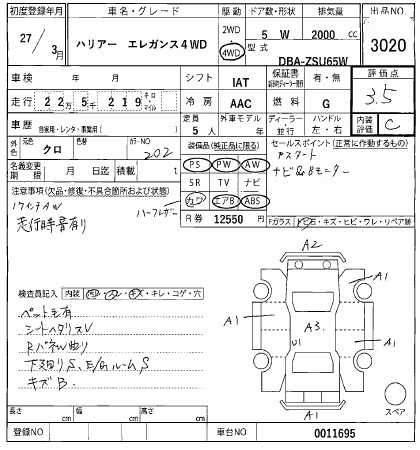 初度登録年月 車名・グレード 駆動 ドア数・形状 排気量 出品NO
27/3月 ハリアー エレガンス4WD 2WD 4WD 5 W 2000 cc 3020
型式 DBA-ZSU65W
車検 年 月 シフト IAT 保証書 有・無 評価点
走行 22万5千219 キロ・マイル 冷房 AAC 燃料 G 3.5
車歴 自家用・レンタ・事業用( ) 定員 5人 外車モデル 年 ディーラー・並行 ハンドル 左・右 内装評価 C
外色 元色 クロ カラーNO 202 装備品(純正品に限る) セールスポイント(正常に作動するもの)
PS PW AW スマート
名義変更期限 月 日 積載 t SR TV ナビ ナビ&Bモニター
注意事項(欠品・修復・不具合個所および状態) ハーフレザー カワ エアB ABS
17インチAW R券 12550 円 Fガラス トビ石・キズ・ヒビ・ワレ・リペア跡
走行時音有り
A2
A1
検査員記入 内装 キズ・キレ・コゲ・穴
ペット毛有 A1 A3 A1
シートヘタリスV U1
Rパネル曲り
下廻りS、E/GルームS A1
キズB
A1 スペア
長さ cm 幅 cm 高さ cm
登録NO 車台NO 0011695